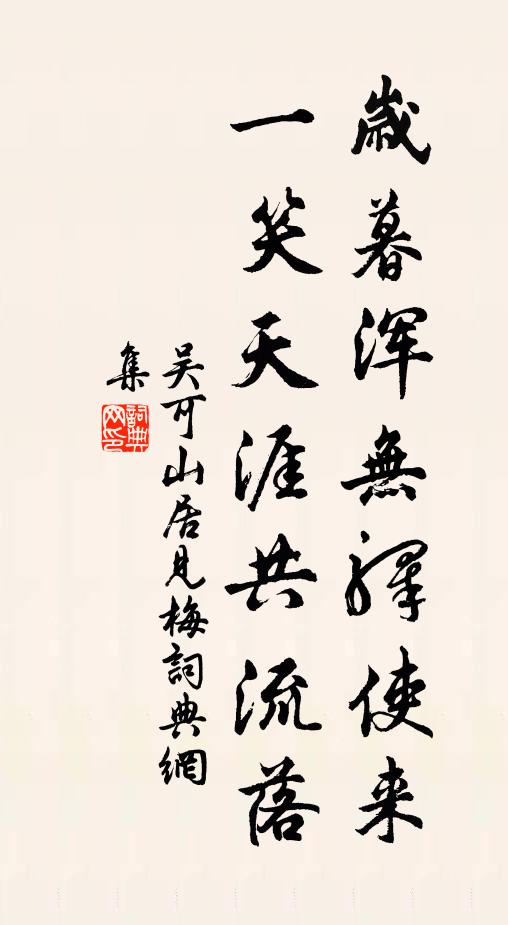 歲暮渾無驛使来
一笑天涯共流落
吴可山居見梅詞典網
集
詞典
网印